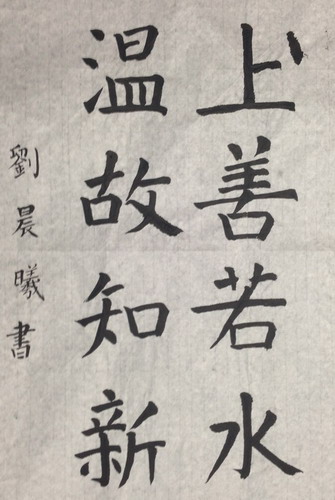 上善若水
温故知新
劉晨曦書